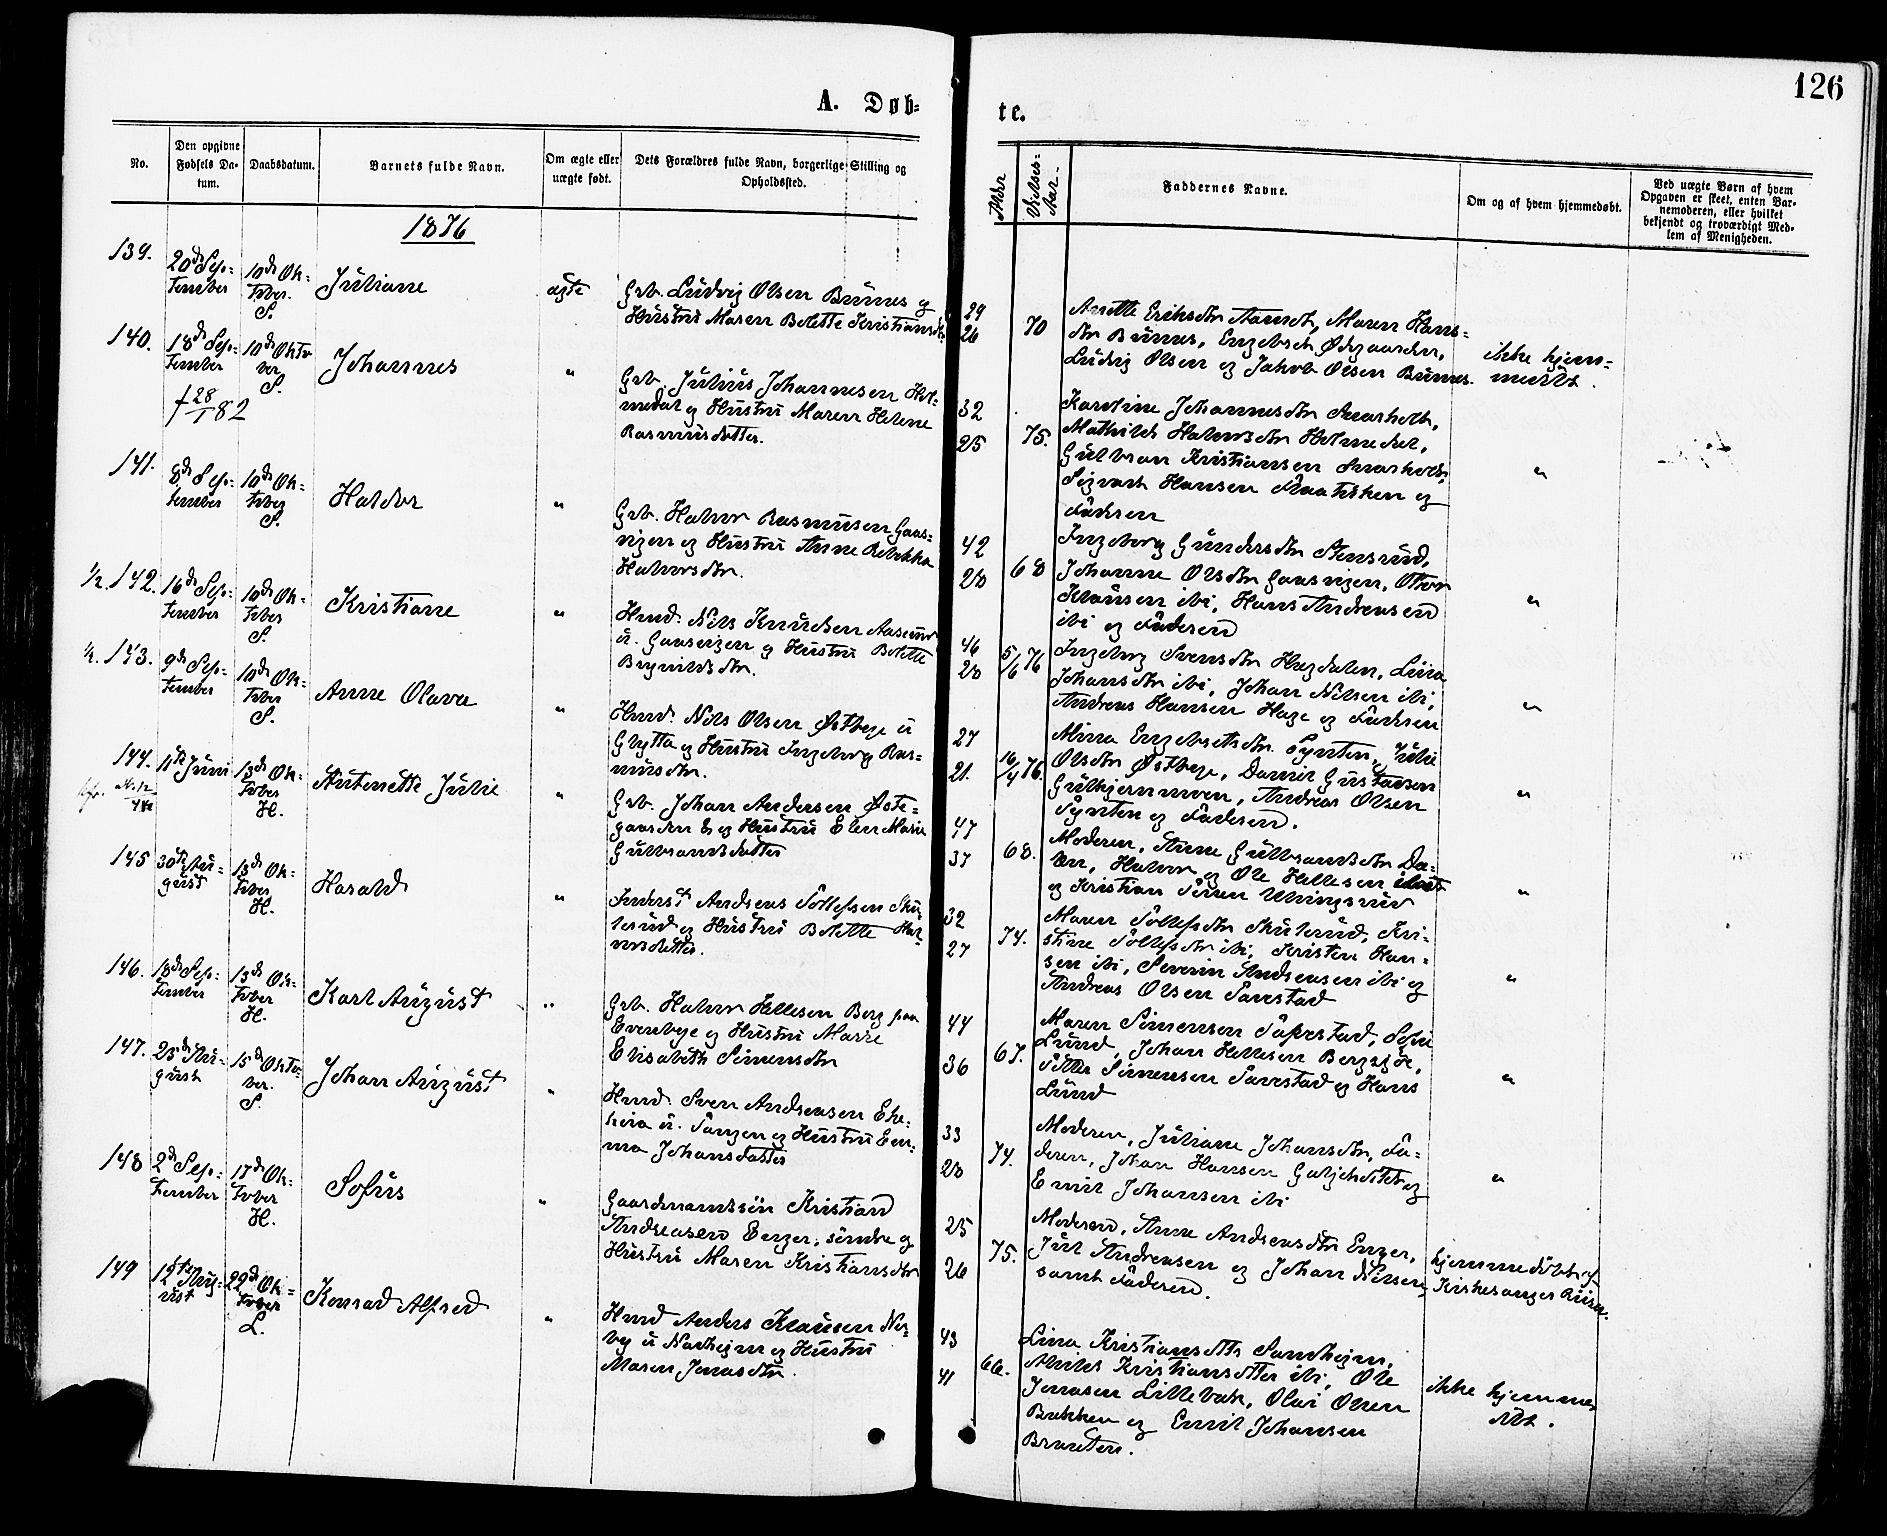 126
A. Døb-
te.
No.
Den opgivne
Fødsels Da-
tum.
Daabsdatum.
Barnets fulde Navn.
Om ægte eller
uægte født.
Dets Forældres fulde Navn, borgerlige Stilling og
Opholdssted.
Alder
Vielses-
Aar.
Faddernes Navne.
Om og af hvem hjemmedøbt.
Ved uægte Børn af hvem
Opgaven er skeet, enten Bar-
nemoderen, eller hvilket
bekjendt og troværdigt Med-
lem af Menigheden.
1876
139.
20de Sep-
tember
10de Ok-
tober.
S.
Juliane
ægte
Grb. Ludvig Olsen Bünes og
Hustru Maren Bolette Kristiansdtr.
29
26
70
Anette Eriksdtr Aamodt, Maren Hans-
dtr Bünes, Engebret Ødegaarden,
Ludvig Olsen og Jakob Olsen Bünes.
ikke hjem-
medøbt.
140.
18de Sep-
tember
10de Okto
ber
S.
Johannes
"
Grb. Julius Johannesen Hol-
medal og Hustru Maren Helene
Rasmusdatter.
† 28/1 82
32
25
75.
Karoline Johannesdtr
Mathilde Halvorsdtr Holmedal,
Gulbran Kristiansen
Sigvart Hansen og
Faderen
"
141.
8de Sep-
tember
10de Ok-
tober
S.
Haldor
"
Grb. Halvor Rasmusen Gaas-
vigen og Hustru Anne Rebekka
Halvorsdtr.
42
28
68
Ingeborg Gundersdtr Stensrud,
Johanne Olsdtr Gaasvigen,
Klausen ibi, Hans Andreasen
ibi og Faderen
"
½. 142.
16de Sep-
tember
10de Ok-
tober
S.
Kristiane
"
Hmd. Nils Knudsen Aaserud
u. Gaasvigen og Hustru Bolette
Brynildsdtr.
46
28
5/6 76
Ingeborg Svensdtr Hagdalen, Lina
Johansdtr ibi, Johan Nilsen ibi,
Andreas Hansen Hage og Faderen
"
½. 143.
9de Sep-
tember
10de Ok-
tober
S.
Anne Olava
"
Hmd. Nils Olsen Østbye u
Glytta og Hustru Ingeborg Ras-
musdtr.
27
21.
16/4 76.
Mina Engebretsdtr Synten, Julie
Olsdtr Østbye, Daniel Gustavsen
Gulhjernmoen, Andreas Olsen
Synten og Faderen.
"
144.
11te Juni
13de Ok-
tober
H.
Antonette Julie
"
Grb. Johan Andersen Øste-
gaarden E og Hustru Elen Marie
Gulbrandsdatter
47
37
68.
Moderen, Anne Gulbrandsdtr Da-
len, Halvor og Ole Hellesen
og Kristian
"
145
30te Au-
gust
13de Ok-
tober
H.
Harald
"
Inderst Andreas Tollefsen Sku-
lerud og Hustru Bolette Hal-
vorsdatter.
32
27
74.
Maren Tollefsdtr Skulerud, Kri-
stine Tollefsdtr ibi, Kristen Han-
sen ibi, Severin Andreasen ibi og
Andreas Olsen Tarestad
"
146.
18de Sep-
tember
13de Ok-
tober
H.
Karl August
"
Grb. Halvor Hellesen Berg paa
Evenbye og Hustru Marie
Elisabeth Simensdtr
44
36
67.
Maren Simensen Sofie
Lund, Johan Hellesen
Simensen Tarestad og Hans
Lund
"
147.
25de Au-
gust
15de Okto-
ber.
S.
Johan August
"
Hmd. Sven Andreasen Eke-
heia u. Tangen og Hustru Em-
ma Johansdatter
33
28
74.
Moderen, Juliane Johansdtr, Fa-
deren, Johan Hansen og
Emil Johansen ibi
"
148
2de Sep-
tember
17de Ok-
tober
H.
Sofus
"
Gaardmandssön Kristian
Andreasen Enger, söndre og
Hustru Maren Kristiansdtr
25
26
75.
Moderen, Anne Andreasdtr Enger,
Juul Andreasen og Johan Nilsen,
samt Faderen.
hjemmedöbt af
Kirkesanger
149
12te Aug-
ust
22de Ok-
tober
L.
Konrad Alfred
"
Hmd Anders Klausen Ne-
by u Norheim og Hustru
Maren Jonasdtr.
43
41
66.
Lina Kristiansdtr Sandhejm,
Kristiansdatter ibi, Ole
Jonasen Lillebæk, Olai Olsen
Bækken og Emil Johansen
Braaten.
ikke hjemme-
döbt.